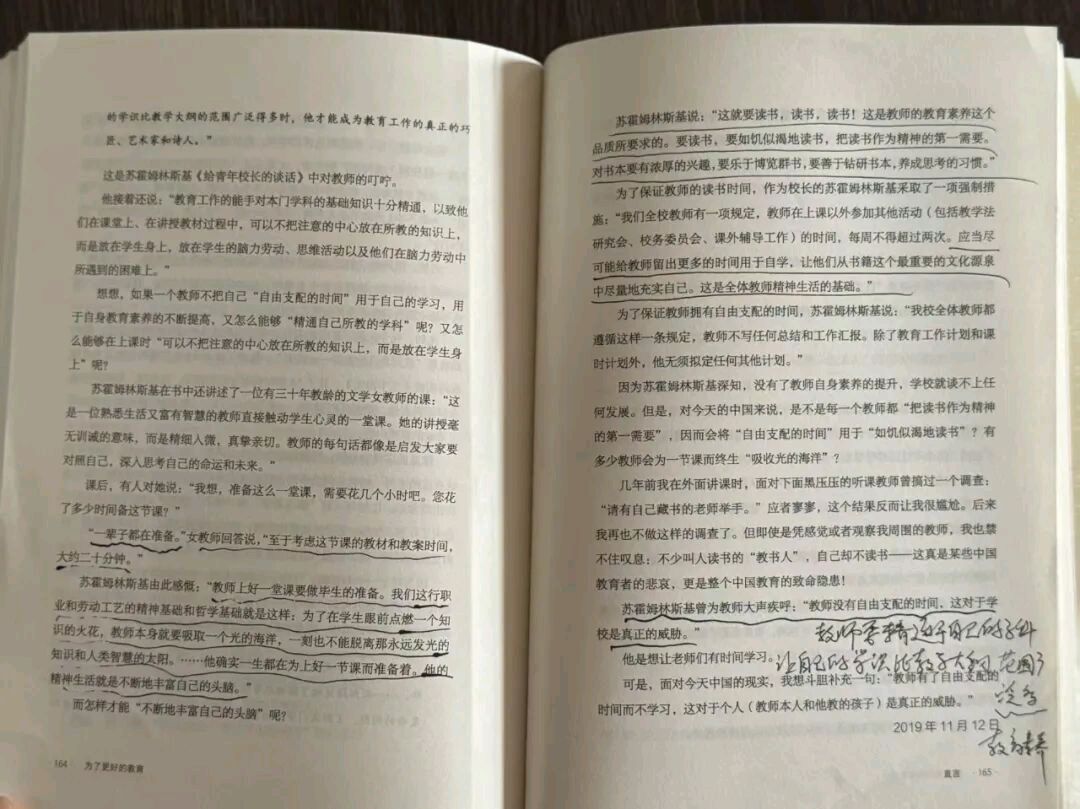 的学识比教学大纲的范围广泛得多时，他才能成为教育工作的真正的巧
匠、艺术家和诗人。”
这是苏霍姆林斯基《给青年校长的谈话》中对教师的叮咛。
他接着还说：“教育工作的能手对本门学科的基础知识十分精通，以致他
们在课堂上、在讲授教材过程中，可以不把注意的中心放在所教的知识上，
而是放在学生身上，放在学生的脑力劳动、思维活动以及他们在脑力劳动中
所遇到的困难上。”
想想，如果一个教师不把自己“自由支配的时间”用于自己的学习，用
于自身教育素养的不断提高，又怎么能够“精通自己所教的学科”呢？又怎
么能够在上课时“可以不把注意的中心放在所教的知识上，而是放在学生身
上”呢？
苏霍姆林斯基在书中还讲述了一位有三十年教龄的文学女教师的课：“这
是一位熟悉生活又富有智慧的教师直接触动学生心灵的一堂课。她的讲授毫
无训诫的意味，而是精细入微，真挚亲切。教师的每句话都像是启发大家要
对照自己，深入思考自己的命运和未来。”
课后，有人对她说：“我想，准备这么一堂课，需要花几个小时吧。您花
了多少时间备这节课？”
“一辈子都在准备。”女教师回答说，“至于考虑这节课的教材和教案时间，
大约二十分钟。”
苏霍姆林斯基由此感慨：“教师上好一堂课要做毕生的准备。我们这行职
业和劳动工艺的精神基础和哲学基础就是这样：为了在学生眼前点燃一个知
识的火花，教师本身就要吸取一个光的海洋，一刻也不能脱离那永远发光的
知识和人类智慧的太阳。……他确实一生都在为上好一节课而准备着。他的
精神生活就是不断地丰富自己的头脑。”
而怎样才能“不断地丰富自己的头脑”呢？
164 为了更好的教育
苏霍姆林斯基说：“这就要读书，读书，读书！这是教师的教育素养这个
品质所要求的。要读书，要如饥似渴地读书，把读书作为精神的第一需要。
对书本要有浓厚的兴趣，要乐于博览群书，要善于钻研书本，养成思考的习惯。”
为了保证教师的读书时间，作为校长的苏霍姆林斯基采取了一项强制措
施：“我们全校教师有一项规定，教师在上课以外参加其他活动（包括教学法
研究会、校务委员会、课外辅导工作）的时间，每周不得超过两次。应当尽
可能给教师留出更多的时间用于自学，让他们从书籍这个最重要的文化源泉
中尽量地充实自己。这是全体教师精神生活的基础。”
为了保证教师拥有自由支配的时间，苏霍姆林斯基说：“我校全体教师都
遵循这样一条规定，教师不写任何总结和工作汇报。除了教育工作计划和课
时计划外，他无须拟定任何其他计划。”
因为苏霍姆林斯基深知，没有了教师自身素养的提升，学校就谈不上任
何发展。但是，对今天的中国来说，是不是每一个教师都“把读书作为精神
的第一需要”，因而会将“自由支配的时间”用于“如饥似渴地读书”？有
多少教师会为一节课而终生“吸收光的海洋”？
几年前我在外面讲课时，面对下面黑压压的听课教师曾搞过一个调查：
“请有自己藏书的老师举手。”应者寥寥，这个结果反而让我很尴尬。后来
我再也不做这样的调查了。但即使是凭感觉或者观察我周围的教师，我也禁
不住叹息：不少叫人读书的“教书人”，自己却不读书——这真是某些中国
教育者的悲哀，更是整个中国教育的致命隐患！
苏霍姆林斯基曾为教师大声疾呼：“教师没有自由支配的时间，这对于学
校是真正的威胁。”
教师要精通自己的学科
他是想让老师们有时间学习。
让自己的学识比教学大纲范围广
可是，面对今天中国的现实，我想斗胆补充一句：“教师有了自由支配的
时间而不学习，这对于个人（教师本人和他教的孩子）是真正的威胁。”
2019年11月12日
直言 ·165·